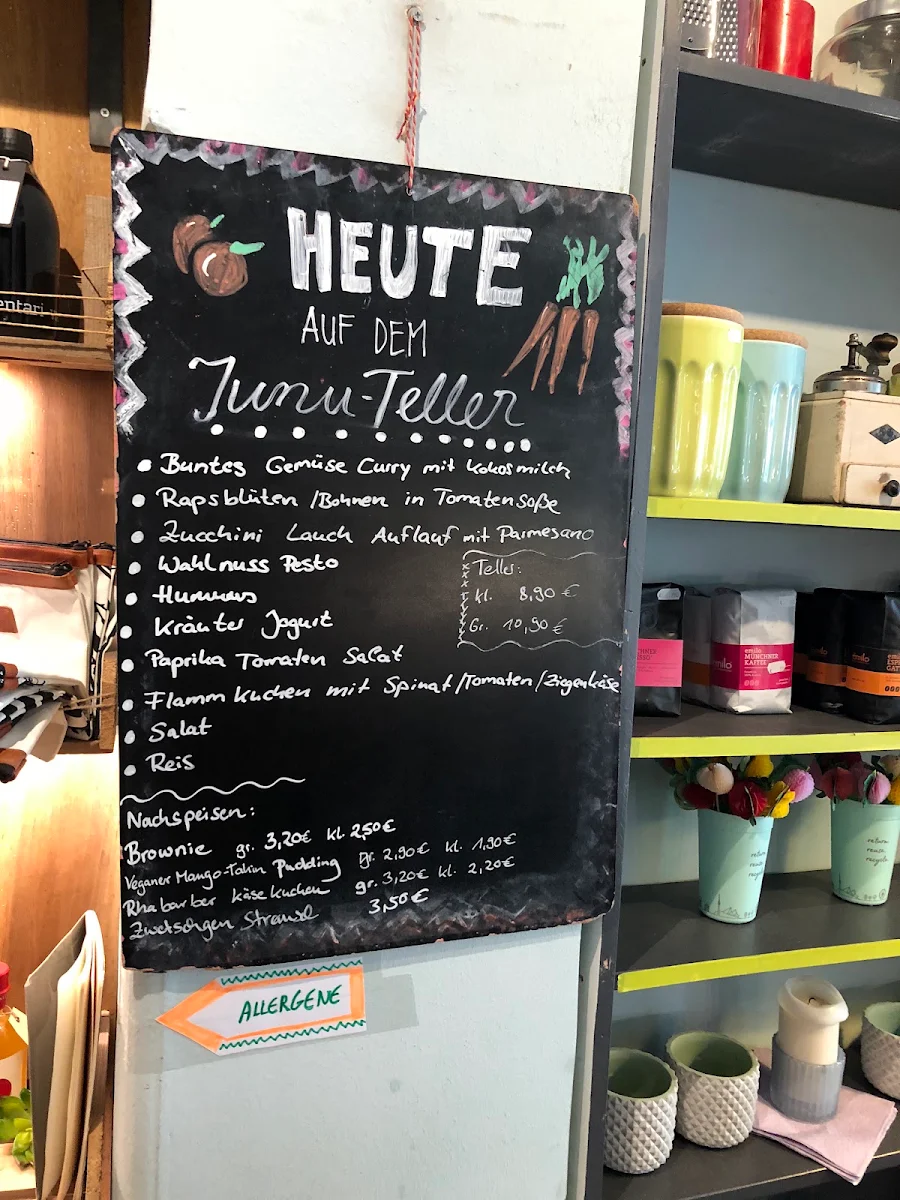 HEUTE
AUF DEM
Junu-Teller
• Buntes Gemüse Curry mit Kokosmilch
• Rapsblüten/Bohnen in Tomatensoße
• Zucchini Lauch Auflauf mit Parmesano
• Wahlnuss Pesto
• Hummus
• Kräuter Jogurt
• Paprika Tomaten Salat
• Flammkuchen mit Spinat/Tomaten/Ziegenkäse
• Salat
• Reis
Teller:
kl. 8,90 €
Gr. 10,90 €
Nachspeisen:
Brownie gr. 3,20€ kl. 2,50€
Veganer Mango-Tahin Pudding gr. 2,90€ kl. 1,90€
Rhabarber käsekuchen gr. 3,20€ kl. 2,20€
Zwetschgen Streusel 3,50€
ALLERGENE
entari
emilo
MÜNCHNER
KAFFEE
emilo
return
reuse
recycle
return
reuse
recycle